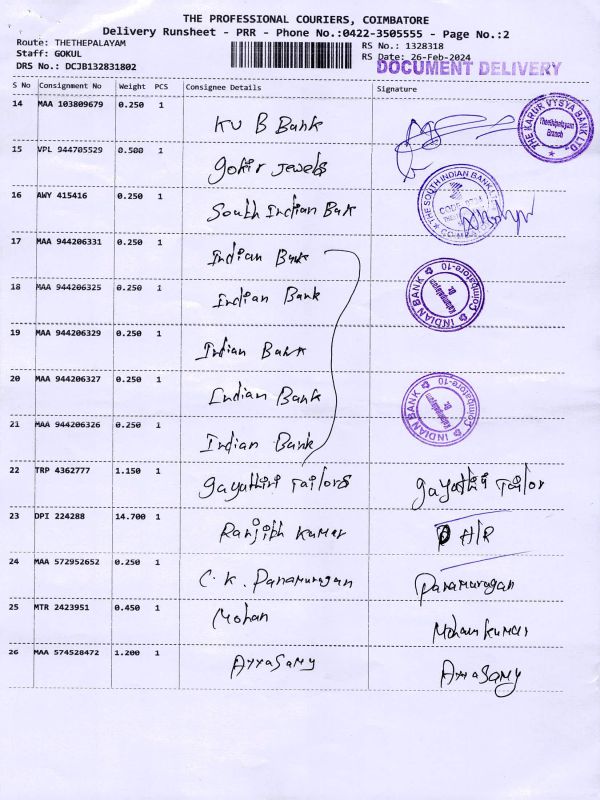 THE PROFESSIONAL COURIERS, COIMBATORE
Delivery Runsheet - PRR - Phone No.:0422-3505555 - Page No.:2
Route: THETHEPALAYAM
Staff: GOKUL
DRS No.: DCJB132831802
RS No.: 1328318
RS Date: 26-Feb-2024
DOCUMENT DELIVERY
S No Consignment No Weight PCS Consignee Details Signature
14 MAA 103809679 0.250 1 KV B Bank
THE KARUR VYSYA BANK LTD. Thethipalayam Branch
15 VPL 944705529 0.500 1 Jewels
16 AWY 415416 0.250 1 South Indian Bank
THE SOUTH INDIAN BANK
17 MAA 944206331 0.250 1 Indian Bank
INDIAN BANK Coimbatore-10 Br.
18 MAA 944206325 0.250 1 Indian Bank
19 MAA 944206329 0.250 1 Indian Bank
20 MAA 944206327 0.250 1 Indian Bank
INDIAN BANK Coimbatore-10 Br.
21 MAA 944206326 0.250 1 Indian Bank
22 TRP 4362777 1.150 1 Gayathiri Tailors Gayathi Tailor
23 DPI 224288 14.700 1 Ranjith Kumar H/R
24 MAA 572952652 0.250 1 C. K. Paramurugan Paramurugan
25 MTR 2423951 0.450 1 Mohan Mohan Kumar
26 MAA 574528472 1.200 1 AyyaSamy AyyaSamy